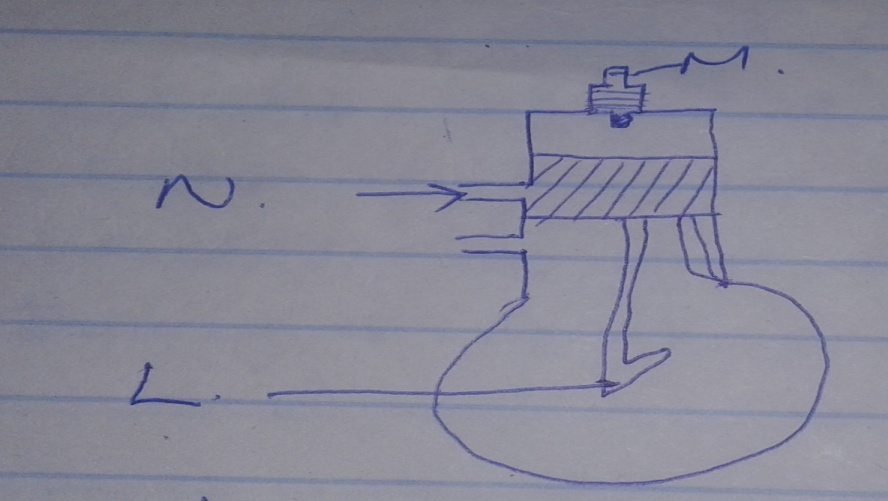 M.
N.
L.